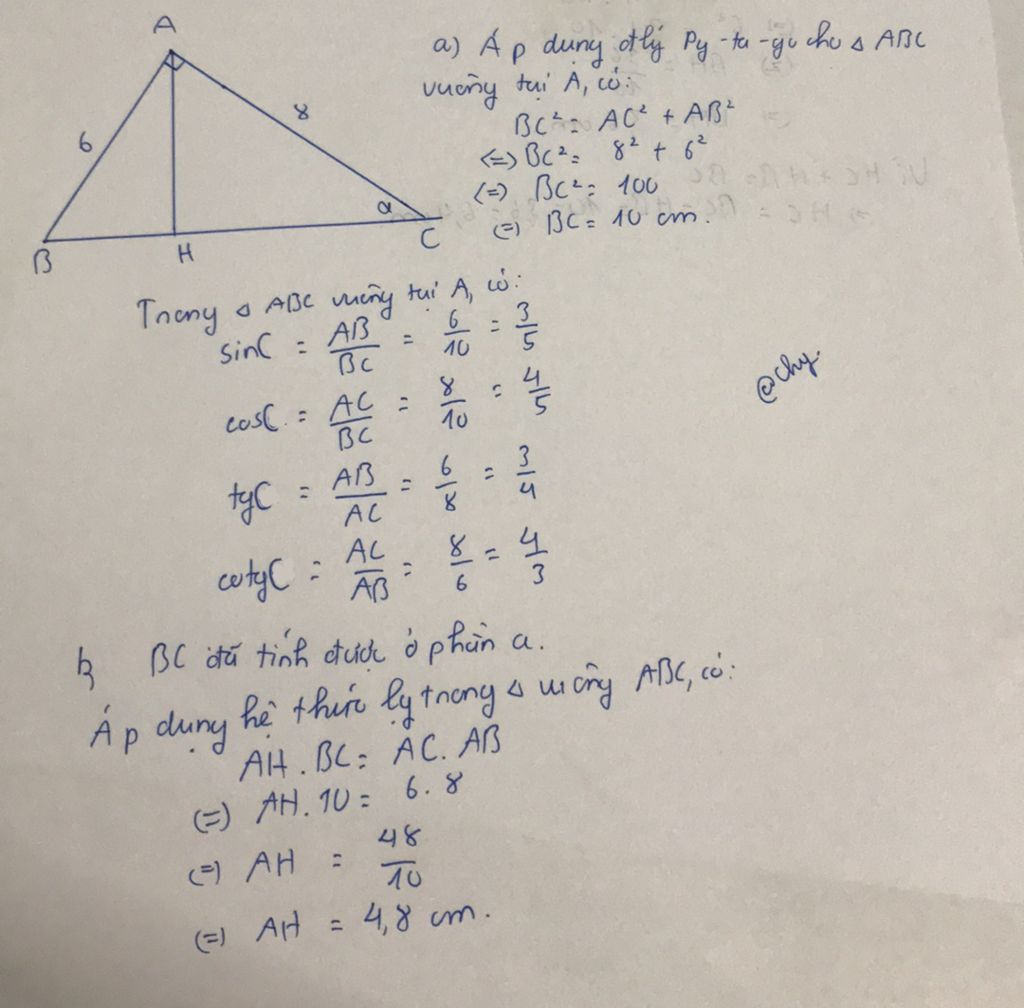 A
6
8
α
B
H
C
a) Áp dụng đlý Py-ta-go cho △ ABC
vuông tại A, có:
BC² = AC² + AB²
(=) BC² = 8² + 6²
(=) BC² = 100
(=) BC = 10 cm.
Trong △ ABC vuông tại A, có:
sinC = AB/BC = 6/10 = 3/5
cosC = AC/BC = 8/10 = 4/5
tgC = AB/AC = 6/8 = 3/4
cotgC = AC/AB = 8/6 = 4/3
@chy.
b, BC đã tính được ở phần a.
Áp dụng hệ thức lg trong △ vuông ABC, có:
AH . BC = AC. AB
(=) AH. 10 = 6. 8
(=) AH = 48/10
(=) AH = 4,8 cm.